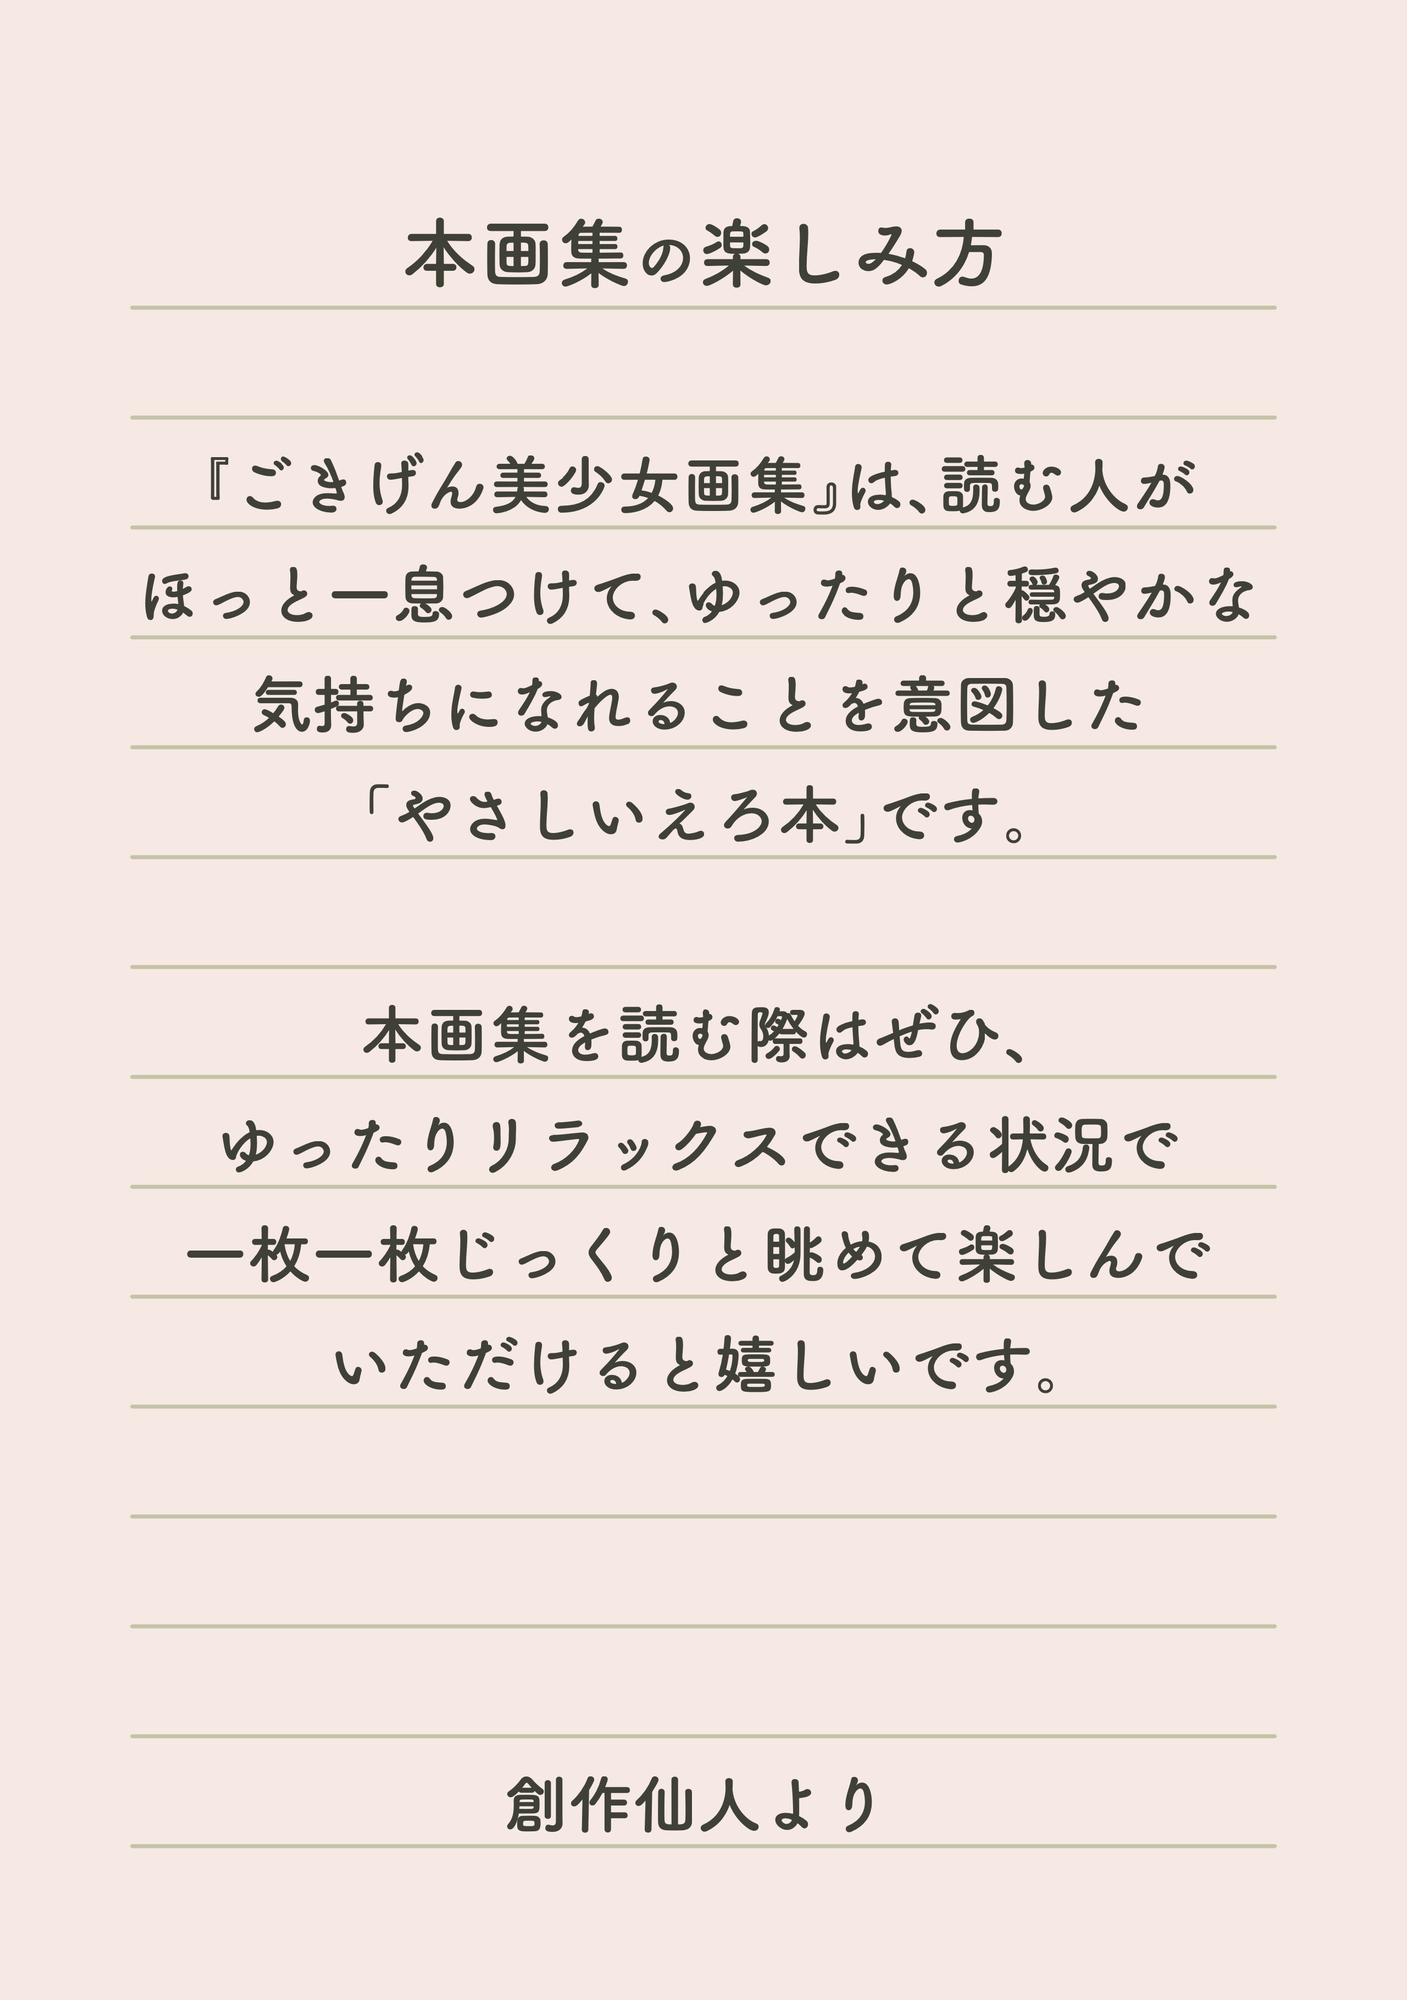 本画集の楽しみ方
『ごきげん美少女画集』は、読む人が
ほっと一息つけて、ゆったりと穏やかな
気持ちになれることを意図した
「やさしいえろ本」です。
本画集を読む際はぜひ、
ゆったりリラックスできる状況で
一枚一枚じっくりと眺めて楽しんで
いただけると嬉しいです。
創作仙人より